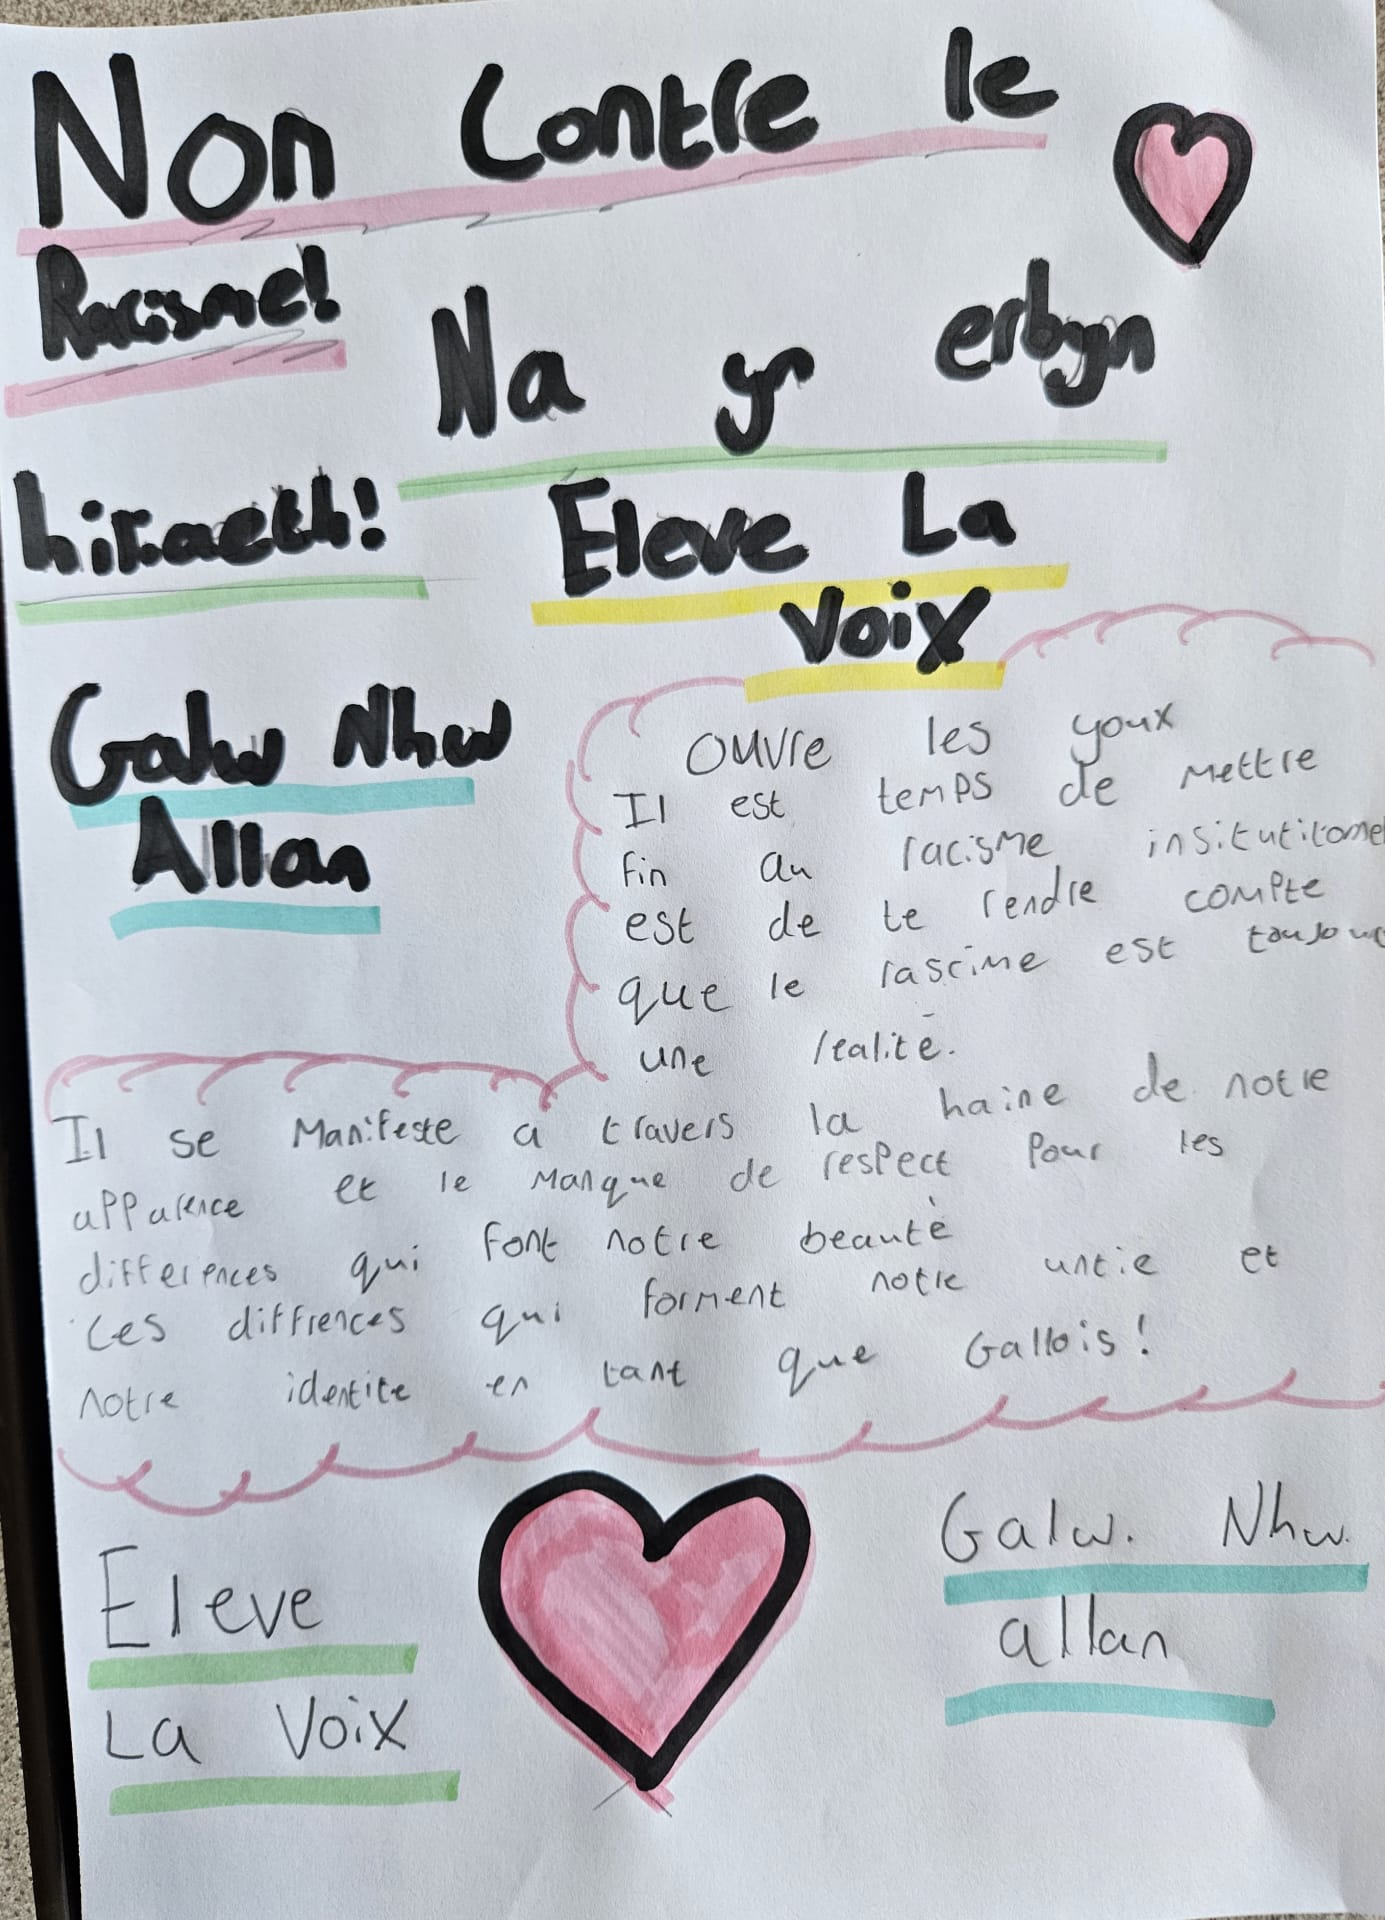 Non Contre le
Racisme!
Na yr erbyn
hiraeth!
Eleve La
Voix
Galw Nhw
Allan
Ouvre les youx
Il est temps de mettre
fin au racisme insitutitonel
est de te rendre compte
que le rascime est toujours
une realité.
Il se Manifeste a travers la haine de notre
apparence et le manque de respect pour les
differences qui font notre beauté
Ces diffrences qui forment notre untie et
notre identite en tant que Gallois!
Eleve
La Voix
Galw. Nhw.
allan